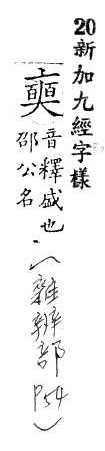 20新加九經字樣
音釋盛也
邵公名.
(雜辨部 P54)